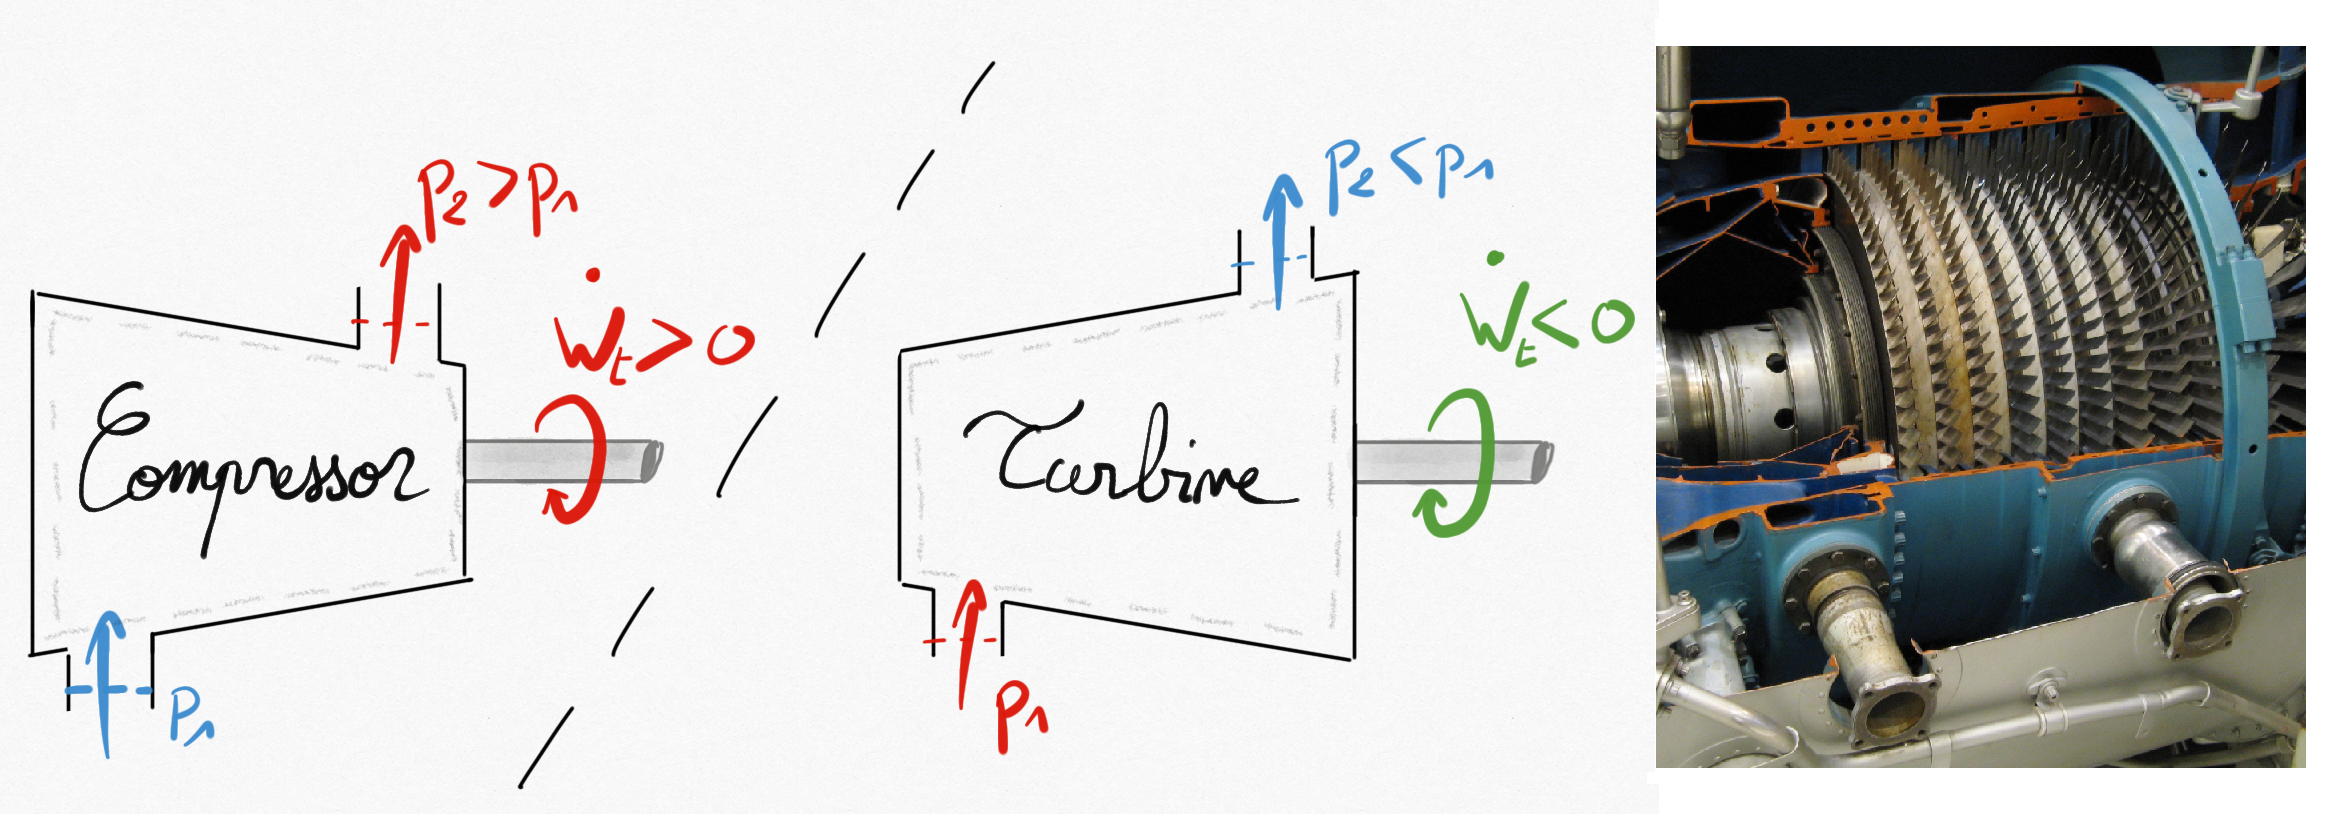 p₂ > p₁
Ẇₜ > 0
Compressor
p₁
p₂ < p₁
Ẇₜ < 0
Turbine
p₁